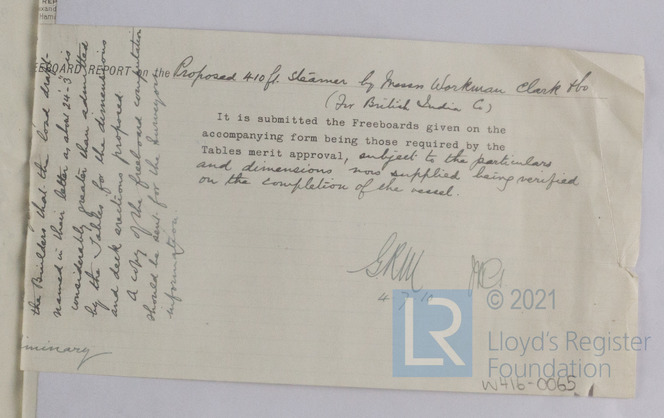 REP
EEBOARD REPORT on the Proposed 410 ft. Steamer by Messrs Workman Clark & Co
(For British India Co)
It is submitted the Freeboards given on the
accompanying form being those required by the
Tables merit approval, subject to the particulars
and dimensions now supplied being verified
on the completion of the vessel.
GRM
4 7 10
the Builders that the load draft
named in their letter is about 24-3 is
considerably greater than admitted
by the Tables for the dimensions
and deck erections proposed
A copy of the freeboard computation
should be sent for the Surveyors
information
iminary
© 2021
LR
Lloyd's Register
Foundation
W416-0065